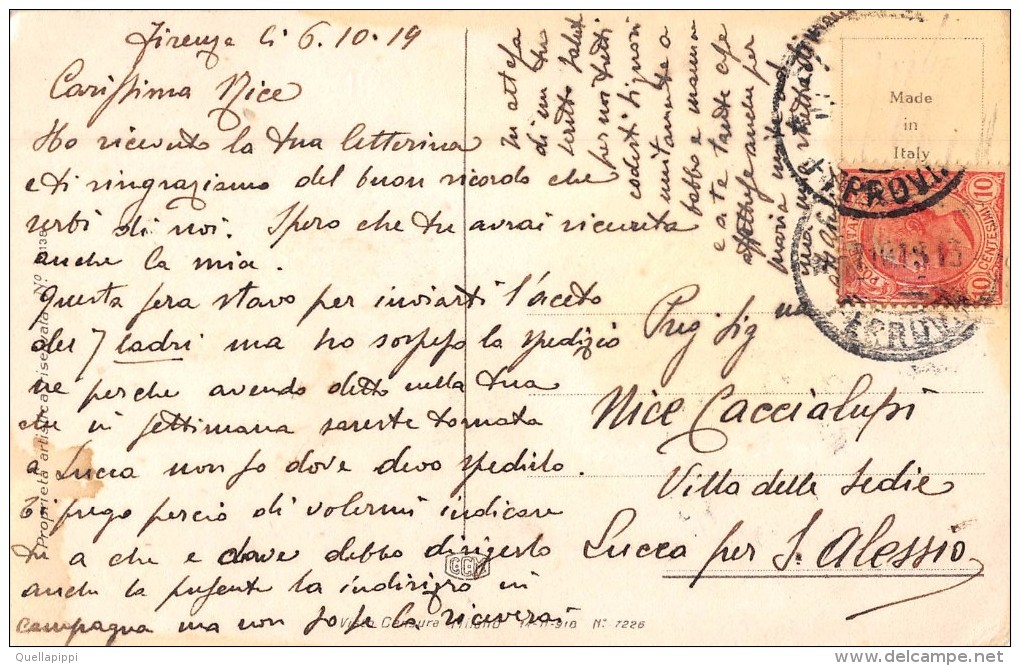 Firenze li 6.10.19
Carissima Nice
Ho ricevuto la tua letterina
e ti ringraziamo del buon ricordo che
serbi di noi. Spero che tu avrai ricevuta
anche la mia.
Questa sera stavo per inviarti l'aceto
dei 7 ladri ma ho sospeso la spedizio
ne perche avendo detto nella tua
che in settimana sareste tornata
a Lucca non so dove devo spedirlo.
Ti prego perciò di volermi indicare
a che e dove debbo dirigerlo
anche la presente la indirizzo in
campagna ma non so se la riceverai
In attesa
di un tuo
scritto saluti
per noi tutti
codesti Signori
unitamente a
babbo e mamma
e a te tante cose
affettuose anche per
Made
in
Italy
FERROVIA
POSTE ITALIANE
CENTESIMI 10
10
FERROVIA
Preg. Sig na
Nice Caccialupi
Villa delle Sedie
Lucca per S. Alessio
Proprietà artistica riservata Nº
CCM
Visto Censura Milano 14-11-918 Nº 7226
Quellapippi
delcampe.net